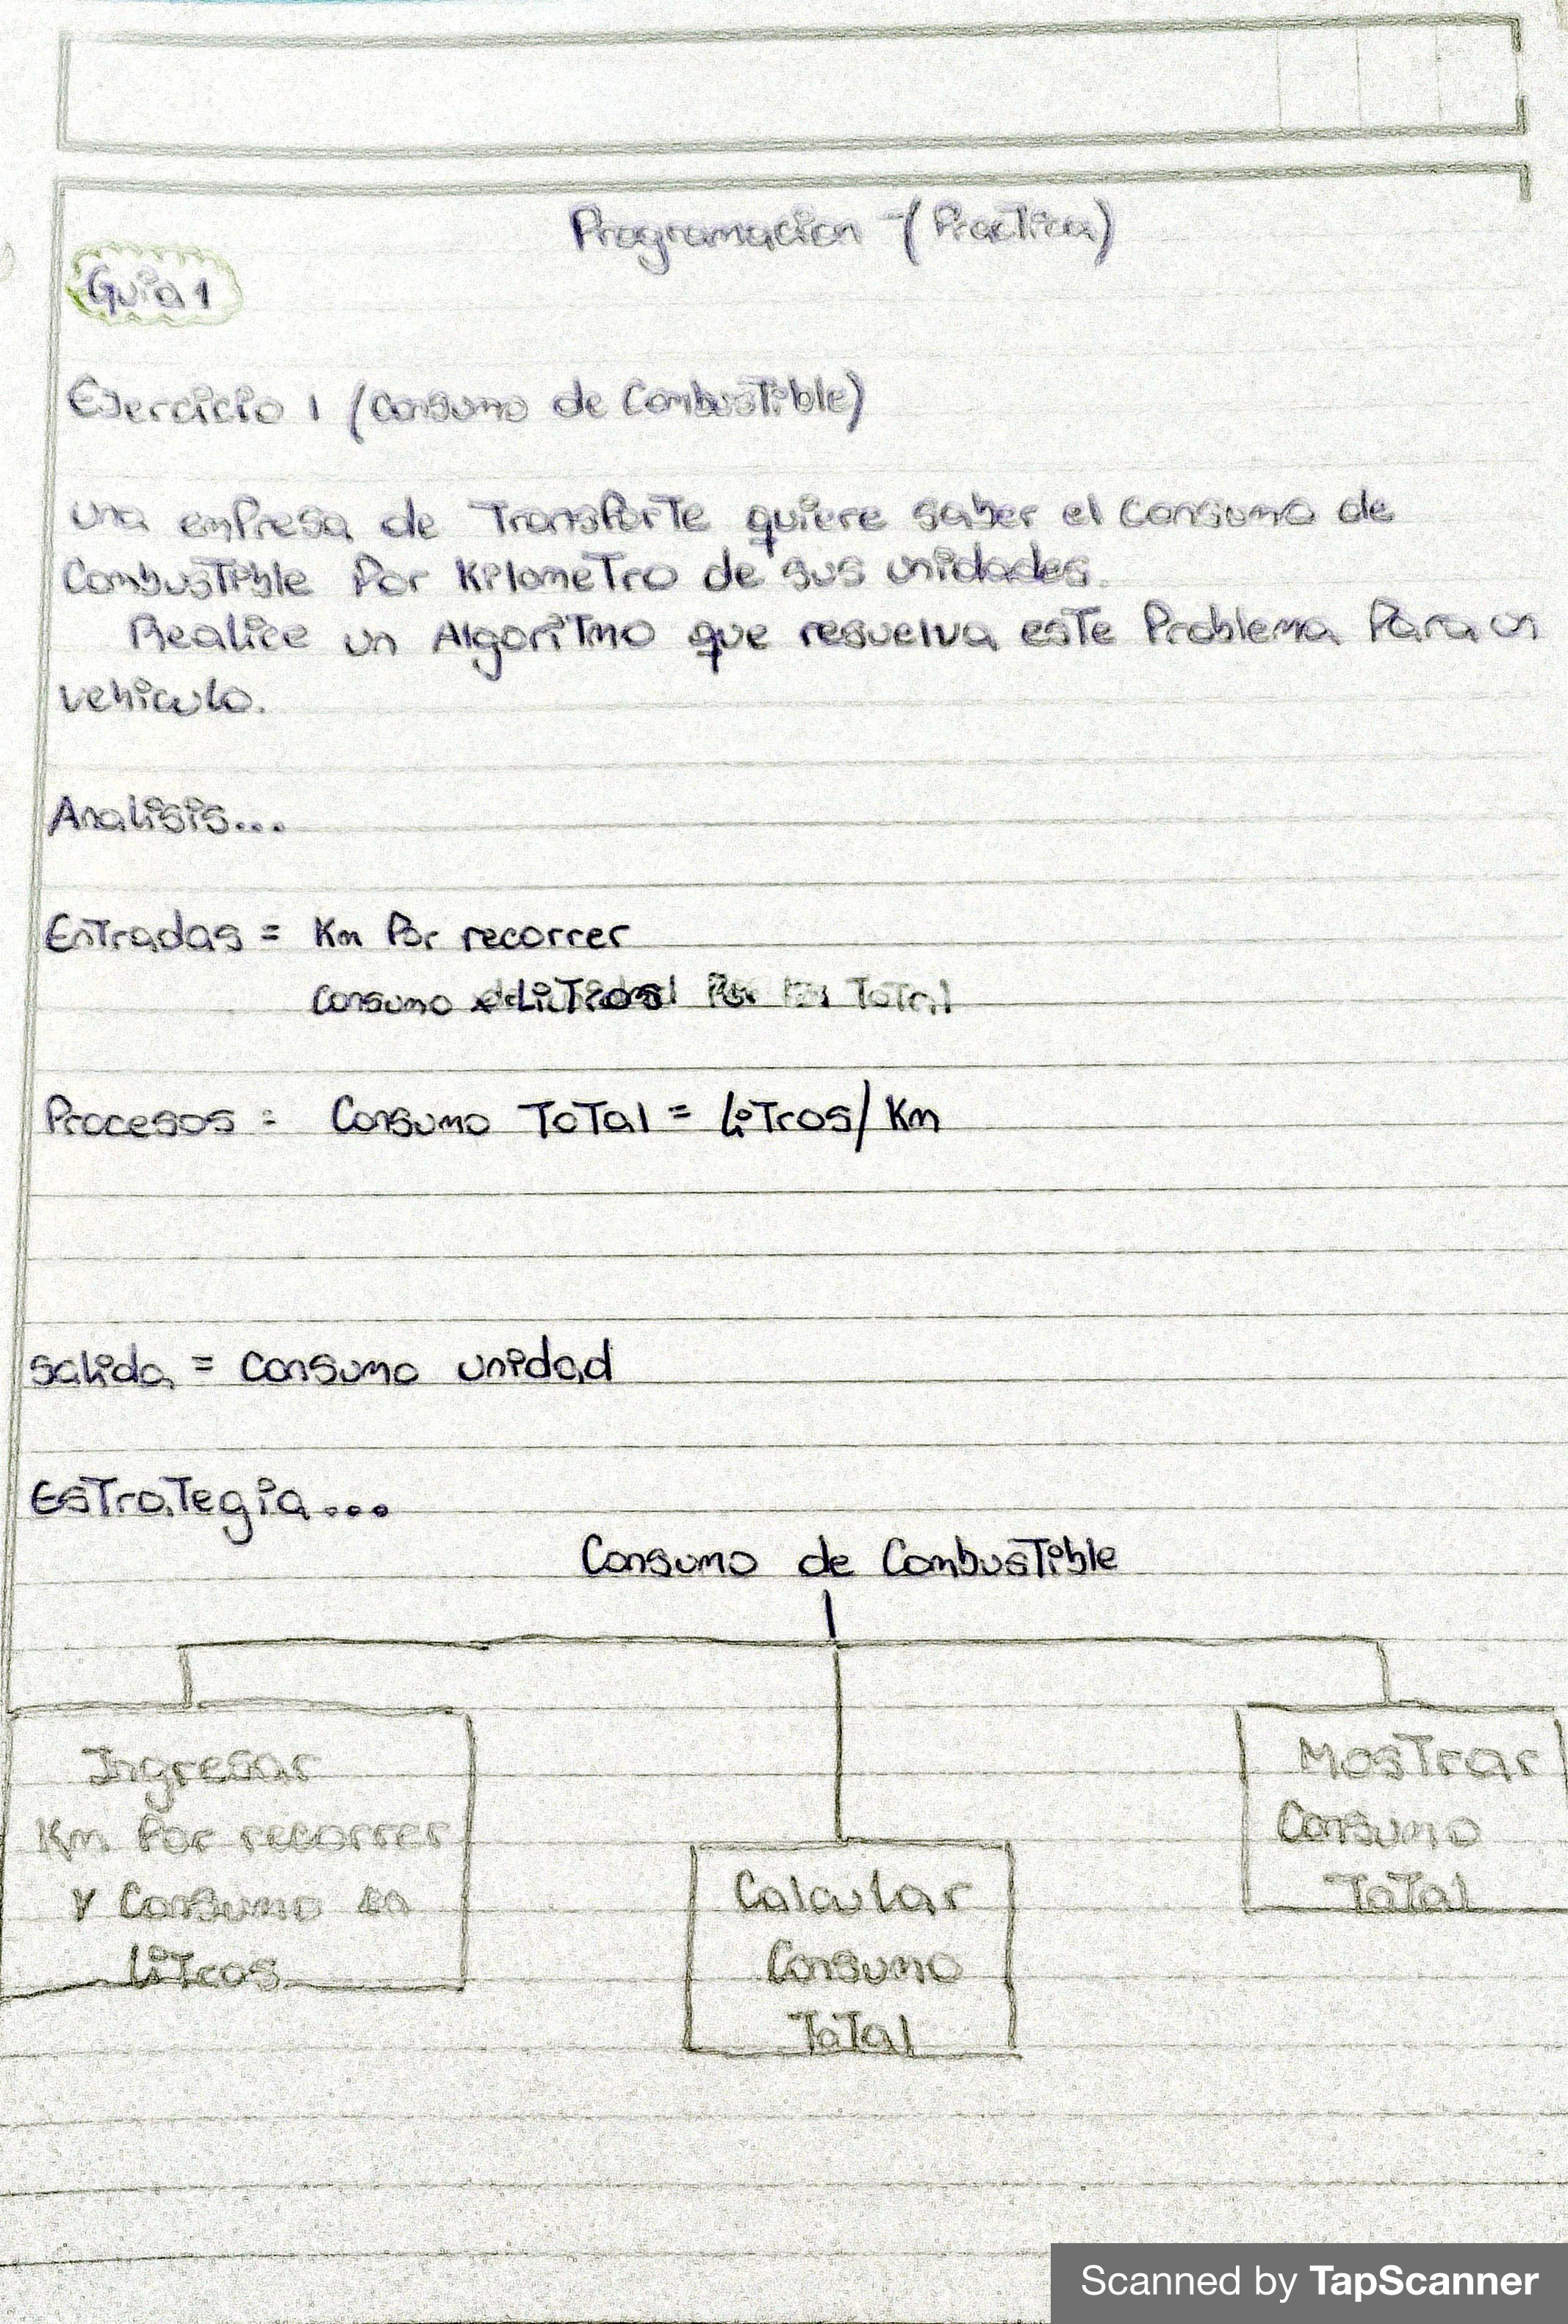 Programacion - (Practica)
Guia 1
Ejercicio 1 (Consumo de Combustible)
una empresa de Transporte quiere saber el Consumo de
Combustible Por Kilometro de sus unidades.
Realice un Algoritmo que resuelva este Problema Para un
vehiculo.
Analisis...
Entradas = Km Por recorrer
Consumo x Litros Total
Procesos = Consumo Total = Litros/Km
salida = Consumo unidad
Estrategia...
Consumo de Combustible
Ingresar
Km Por recorrer
y Consumo en
Litros
Calcular
Consumo
Total
Mostrar
Consumo
Total
Scanned by TapScanner